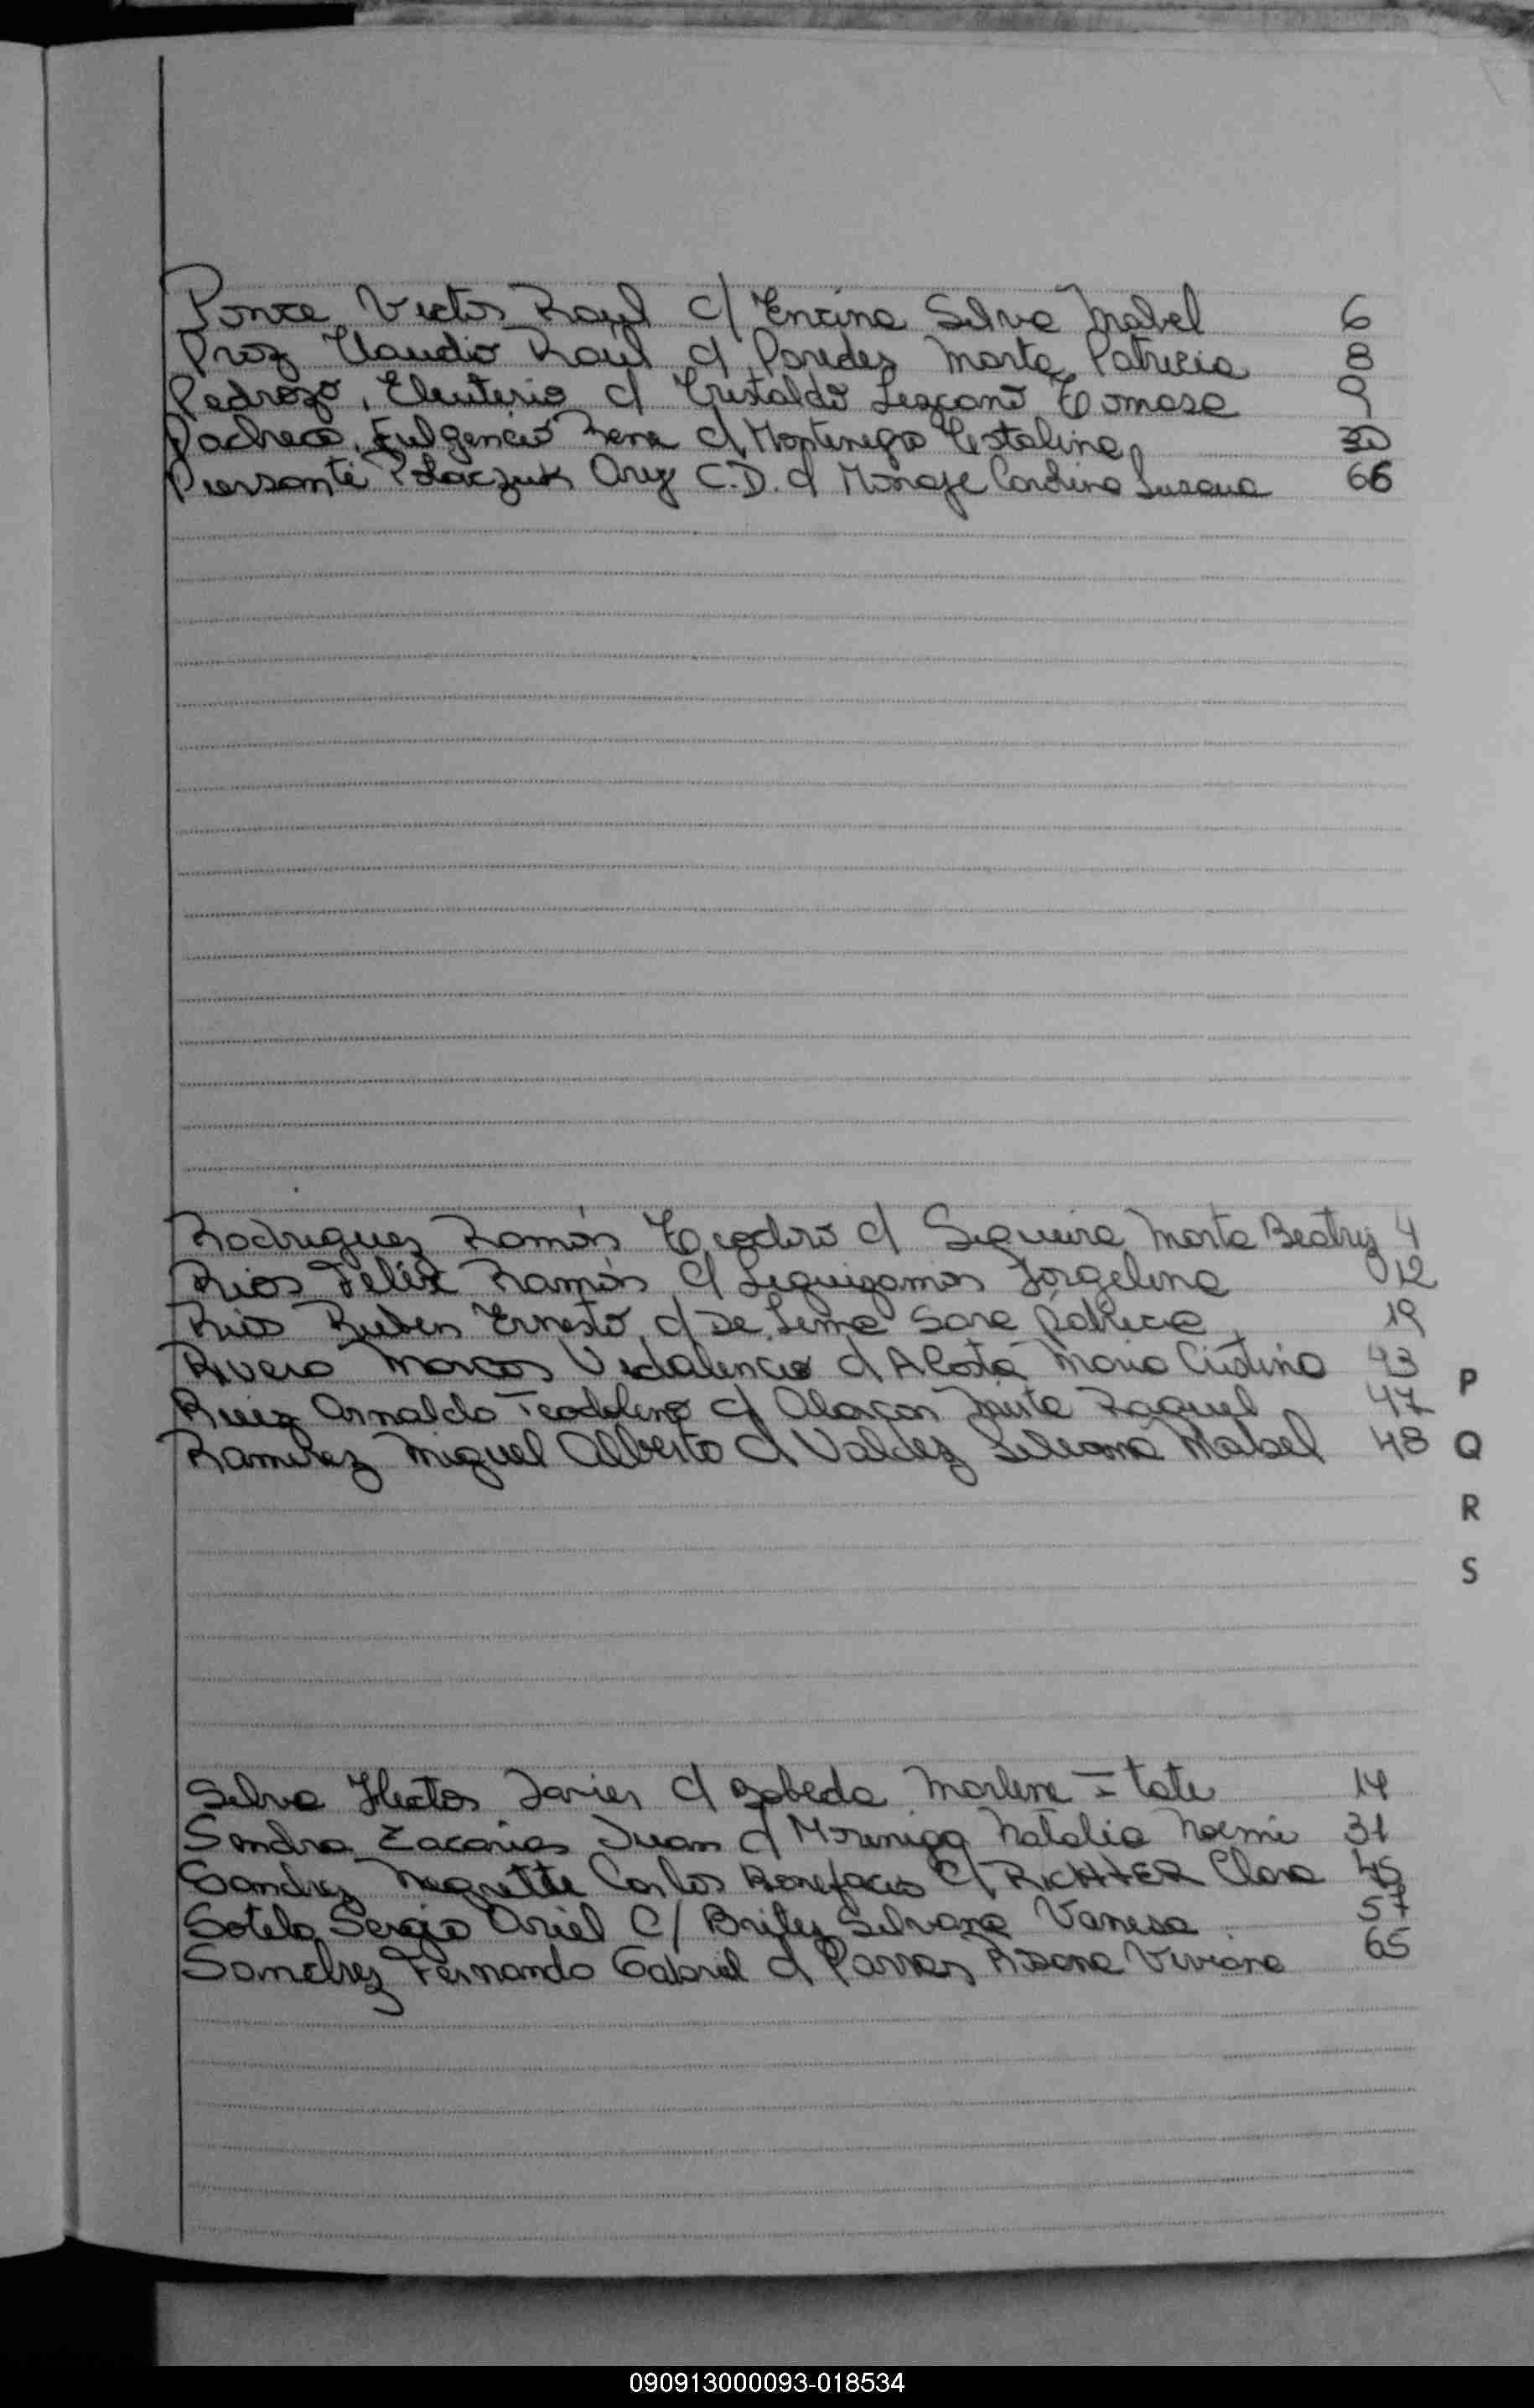 Ponce Victor Raúl c/ Encina Silva Mabel 6
Proz Claudio Raúl c/ Paredes Marta Patricia 8
Pedrozo, Eleuterio c/ Cristaldo Lezcano Tomasa 9
Pacheco, Fulgencio Rene c/ Montenegro Catalina 30
Piersanti Polaczuk Ary C.D. c/ Monaje Carolina Susana 66
Rodriguez Ramón Teodoro c/ Sequeira Marta Beatriz 4
Rios Felix Ramón c/ Leguizamon Jorgelina 12
Rios Ruben Ernesto c/ De Lima Sara Patricia 19
Rivero Marcos Vidalencio c/ Alosta Maria Cristina 43
Ruiz Arnaldo Teodolino c/ Alarcon Raquel 47
Ramirez Miguel Alberto c/ Valdez Liliana Mabel 48
P
Q
R
S
Silva Hector Javier c/ Marlene 14
Sendra Zacarias Juan c/ Moreniga Natalia Noemi 31
Sanchez Negrette Carlos Bonefacio c/ RICHTER Clara 45
Sotelo Sergio Ariel c/ Britez Silvana Vanesa 57
Sanchez Fernando Gabriel c/ Viviana 65
090913000093-018534